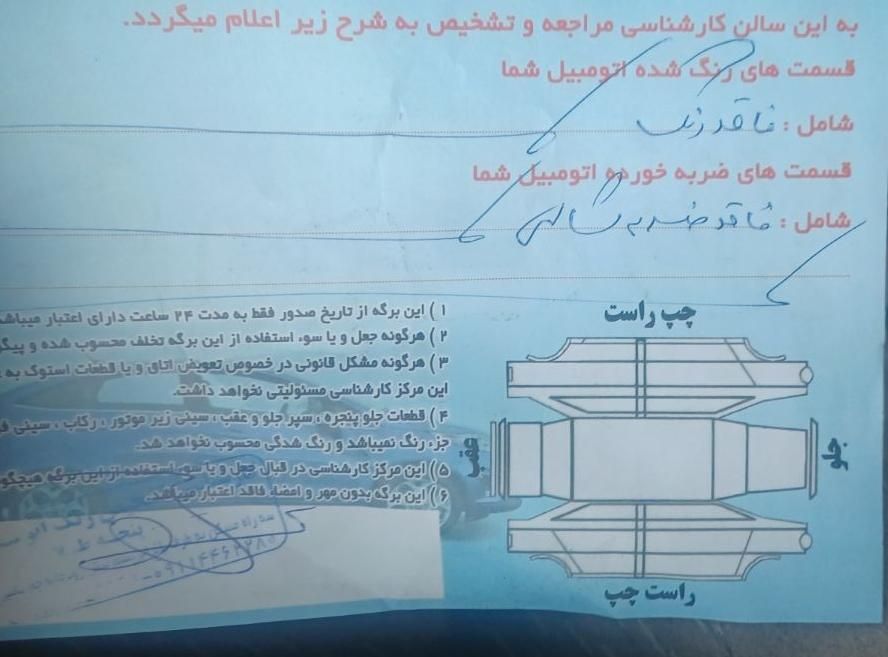 به این سالن کارشناسی مراجعه و تشخیص به شرح زیر اعلام میگردد.
قسمت های رنگ شده اتومبیل شما
شامل : فاقد رنگ
قسمت های ضربه خورده اتومبیل شما
شامل : فاقد ضربه شاسی
۱ ) این برگه از تاریخ صدور فقط به مدت ۲۴ ساعت دارای اعتبار میباشد
۲ ) هرگونه جعل و یا سوء استفاده از این برگه تخلف محسوب شده و
۳ ) هرگونه مشکل قانونی در خصوص تعویض اتاق و یا قطعات استوک به
این مرکز کارشناسی مسئولیتی نخواهد داشت.
۴ ) قطعات جلو پنجره ، سپر جلو و عقب ، سینی زیر موتور ، رکاب ، سینی
جزء رنگ نمیباشد و رنگ شدگی محسوب نخواهد شد.
۵ ) این مرکز کارشناسی در قبال جعل و یا سوء استفاده از این برگه
۶ ) این برگه بدون مهر و امضاء فاقد اعتبار میباشد.
چپ راست
عقب
جلو
راست چپ